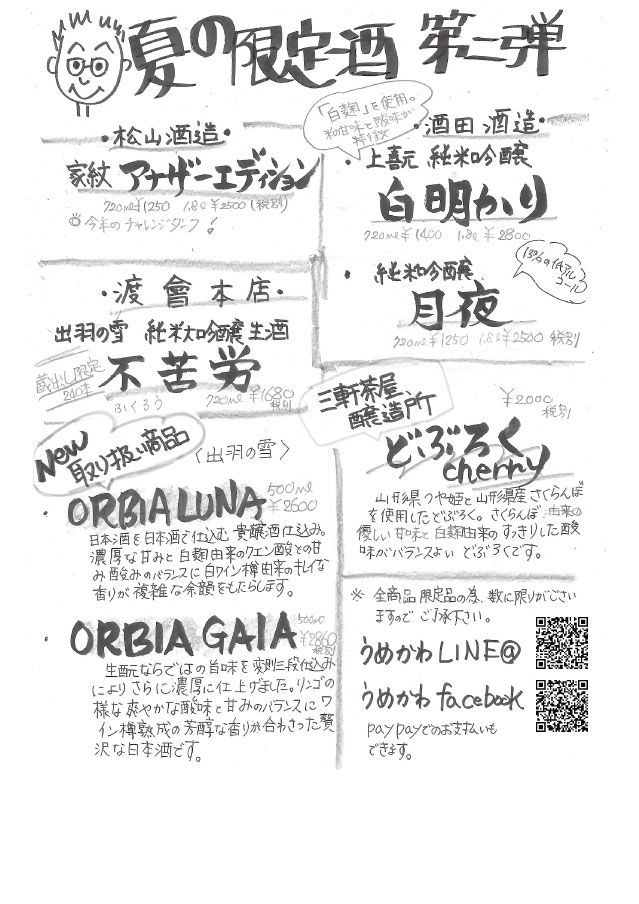 夏の限定酒 第二弾
・松山酒造・
家紋 アナザーエディション
720ml¥1250 1.8ℓ ¥2500 (税別)
今年のチャレンジタンク!
「白麹」を使用。
米の甘味と酸味が
特徴
・酒田酒造・
・上喜元 純米吟醸
白明かり
720ml¥1400 1.8ℓ ¥2800
13%の低アル
コール
・純米吟醸
月夜
720ml¥1250 1.8ℓ¥2500 税別
・渡會本店・
出羽の雪 純米大吟醸生酒
蔵出し限定
240本
不苦労
ふくろう
720ml ¥1680
税別
New
取り扱い商品
〈出羽の雪〉
・ORBIA LUNA 500ml
¥2600
日本酒を日本酒で仕込む貴醸酒仕込み。
濃厚な甘みと白麹由来のクエン酸との甘
み酸みのバランスに白ワイン樽由来のキレイな
香りが複雑な余韻をもたらします。
・ORBIA GAIA 500ml
¥2860
税別
生酛ならではの旨味を変則三段仕込み
によりさらに濃厚に仕上げました。リンゴの
様な爽やかな酸味と甘みのバランスにワ
イン樽熟成の芳醇な香りが合わさった贅
沢な日本酒です。
三軒茶屋
醸造所
¥2000
税別
どぶろく
cherry
山形県つや姫と山形県産さくらんぼ
を使用したどぶろく。さくらんぼ由来の
優しい甘味と白麹由来のすっきりした酸
味がバランスよい どぶろくです。
※ 全商品限定品の為、数に限りがござい
ますので ご了承下さい。
うめかわ LINE@
うめかわ facebook
PayPayでのお支払いも
できます。